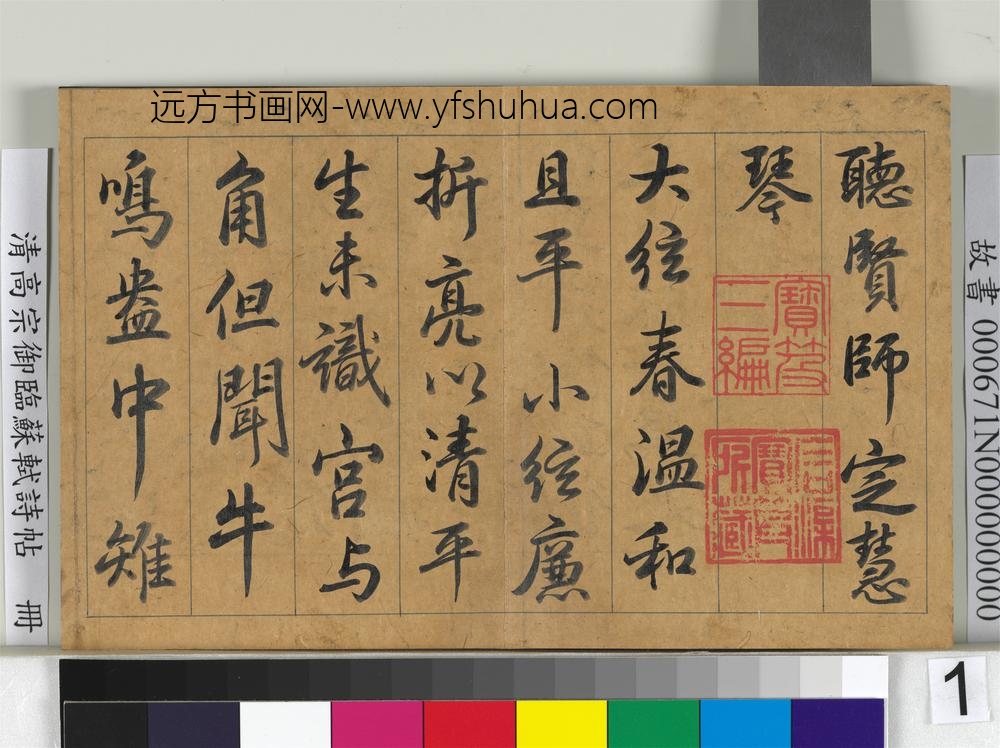 远方书画网-www.yfshuhua.com
聽賢師定慧
琴
寶笈三編
石渠寶笈所藏
大絃春温和
且平小絃廉
折亮以清平
生未識宮与
角但聞牛
鳴盎中雉
故書 000671N000000000
清高宗御臨蘇軾詩帖 冊
1